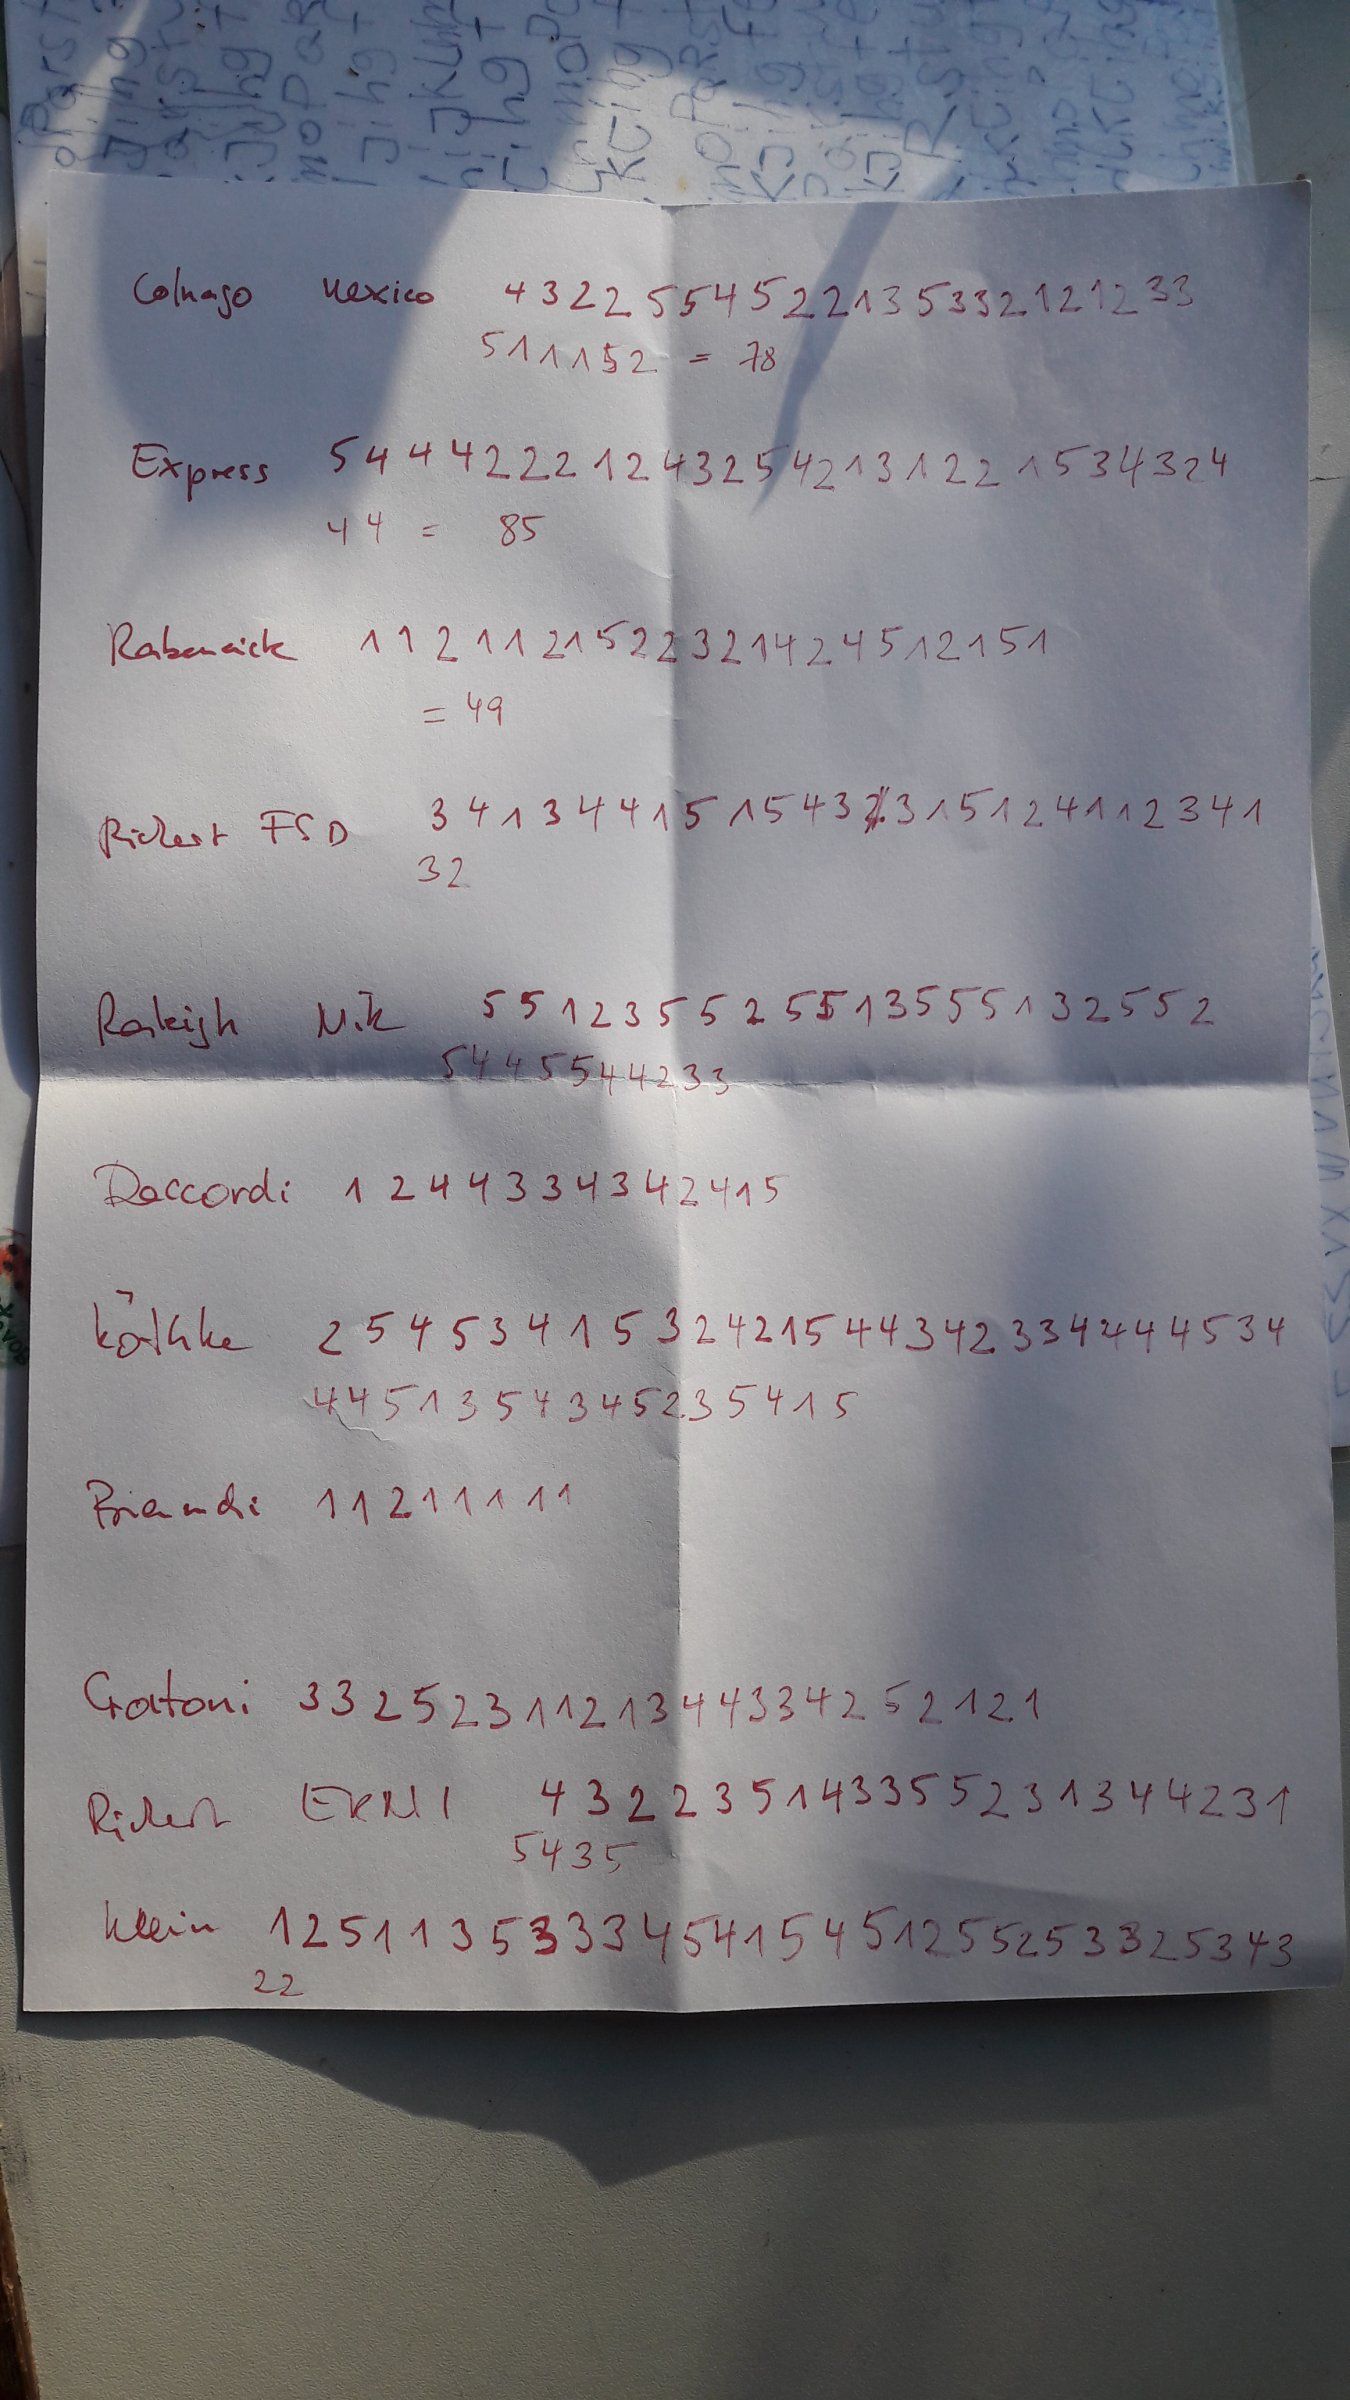 Colnago Mexico 4 3 2 2 5 5 4 5 2 2 1 3 5 3 3 2 1 2 1 2 3 3
5 1 1 1 5 2 = 78
Express 5 4 4 4 2 2 2 1 2 4 3 2 5 4 2 1 3 1 2 2 1 5 3 4 3 2 4
4 4 = 85
Rabeneick 1 1 2 1 1 2 1 5 2 2 3 2 1 4 2 4 5 1 2 1 5 1
= 49
Rickert FSD 3 4 1 3 4 4 1 5 1 5 4 3 3 1 5 1 2 4 1 1 2 3 4 1
3 2
Raleigh Nik 5 5 1 2 3 5 5 2 5 5 1 3 5 5 5 1 3 2 5 5 2
5 4 4 5 5 4 4 2 3 3
Daccordi 1 2 4 4 3 3 4 3 4 2 4 1 5
Köthke 2 5 4 5 3 4 1 5 3 2 4 2 1 5 4 4 3 4 2 3 3 4 4 4 4 5 3 4
4 4 5 1 3 5 4 3 4 5 2 3 5 4 1 5
Bianchi 1 1 2 1 1 1 1 1
Gatoni 3 3 2 5 2 3 1 1 2 1 3 4 4 3 3 4 2 5 2 1 2 1
Rickert 4 3 2 2 3 5 1 4 3 3 5 5 2 3 1 3 4 4 2 3 1
5 4 3 5
Klein 1 2 5 1 1 3 5 3 3 3 4 5 4 1 5 4 5 1 2 5 5 2 5 3 3 2 5 3 4 3
2 2